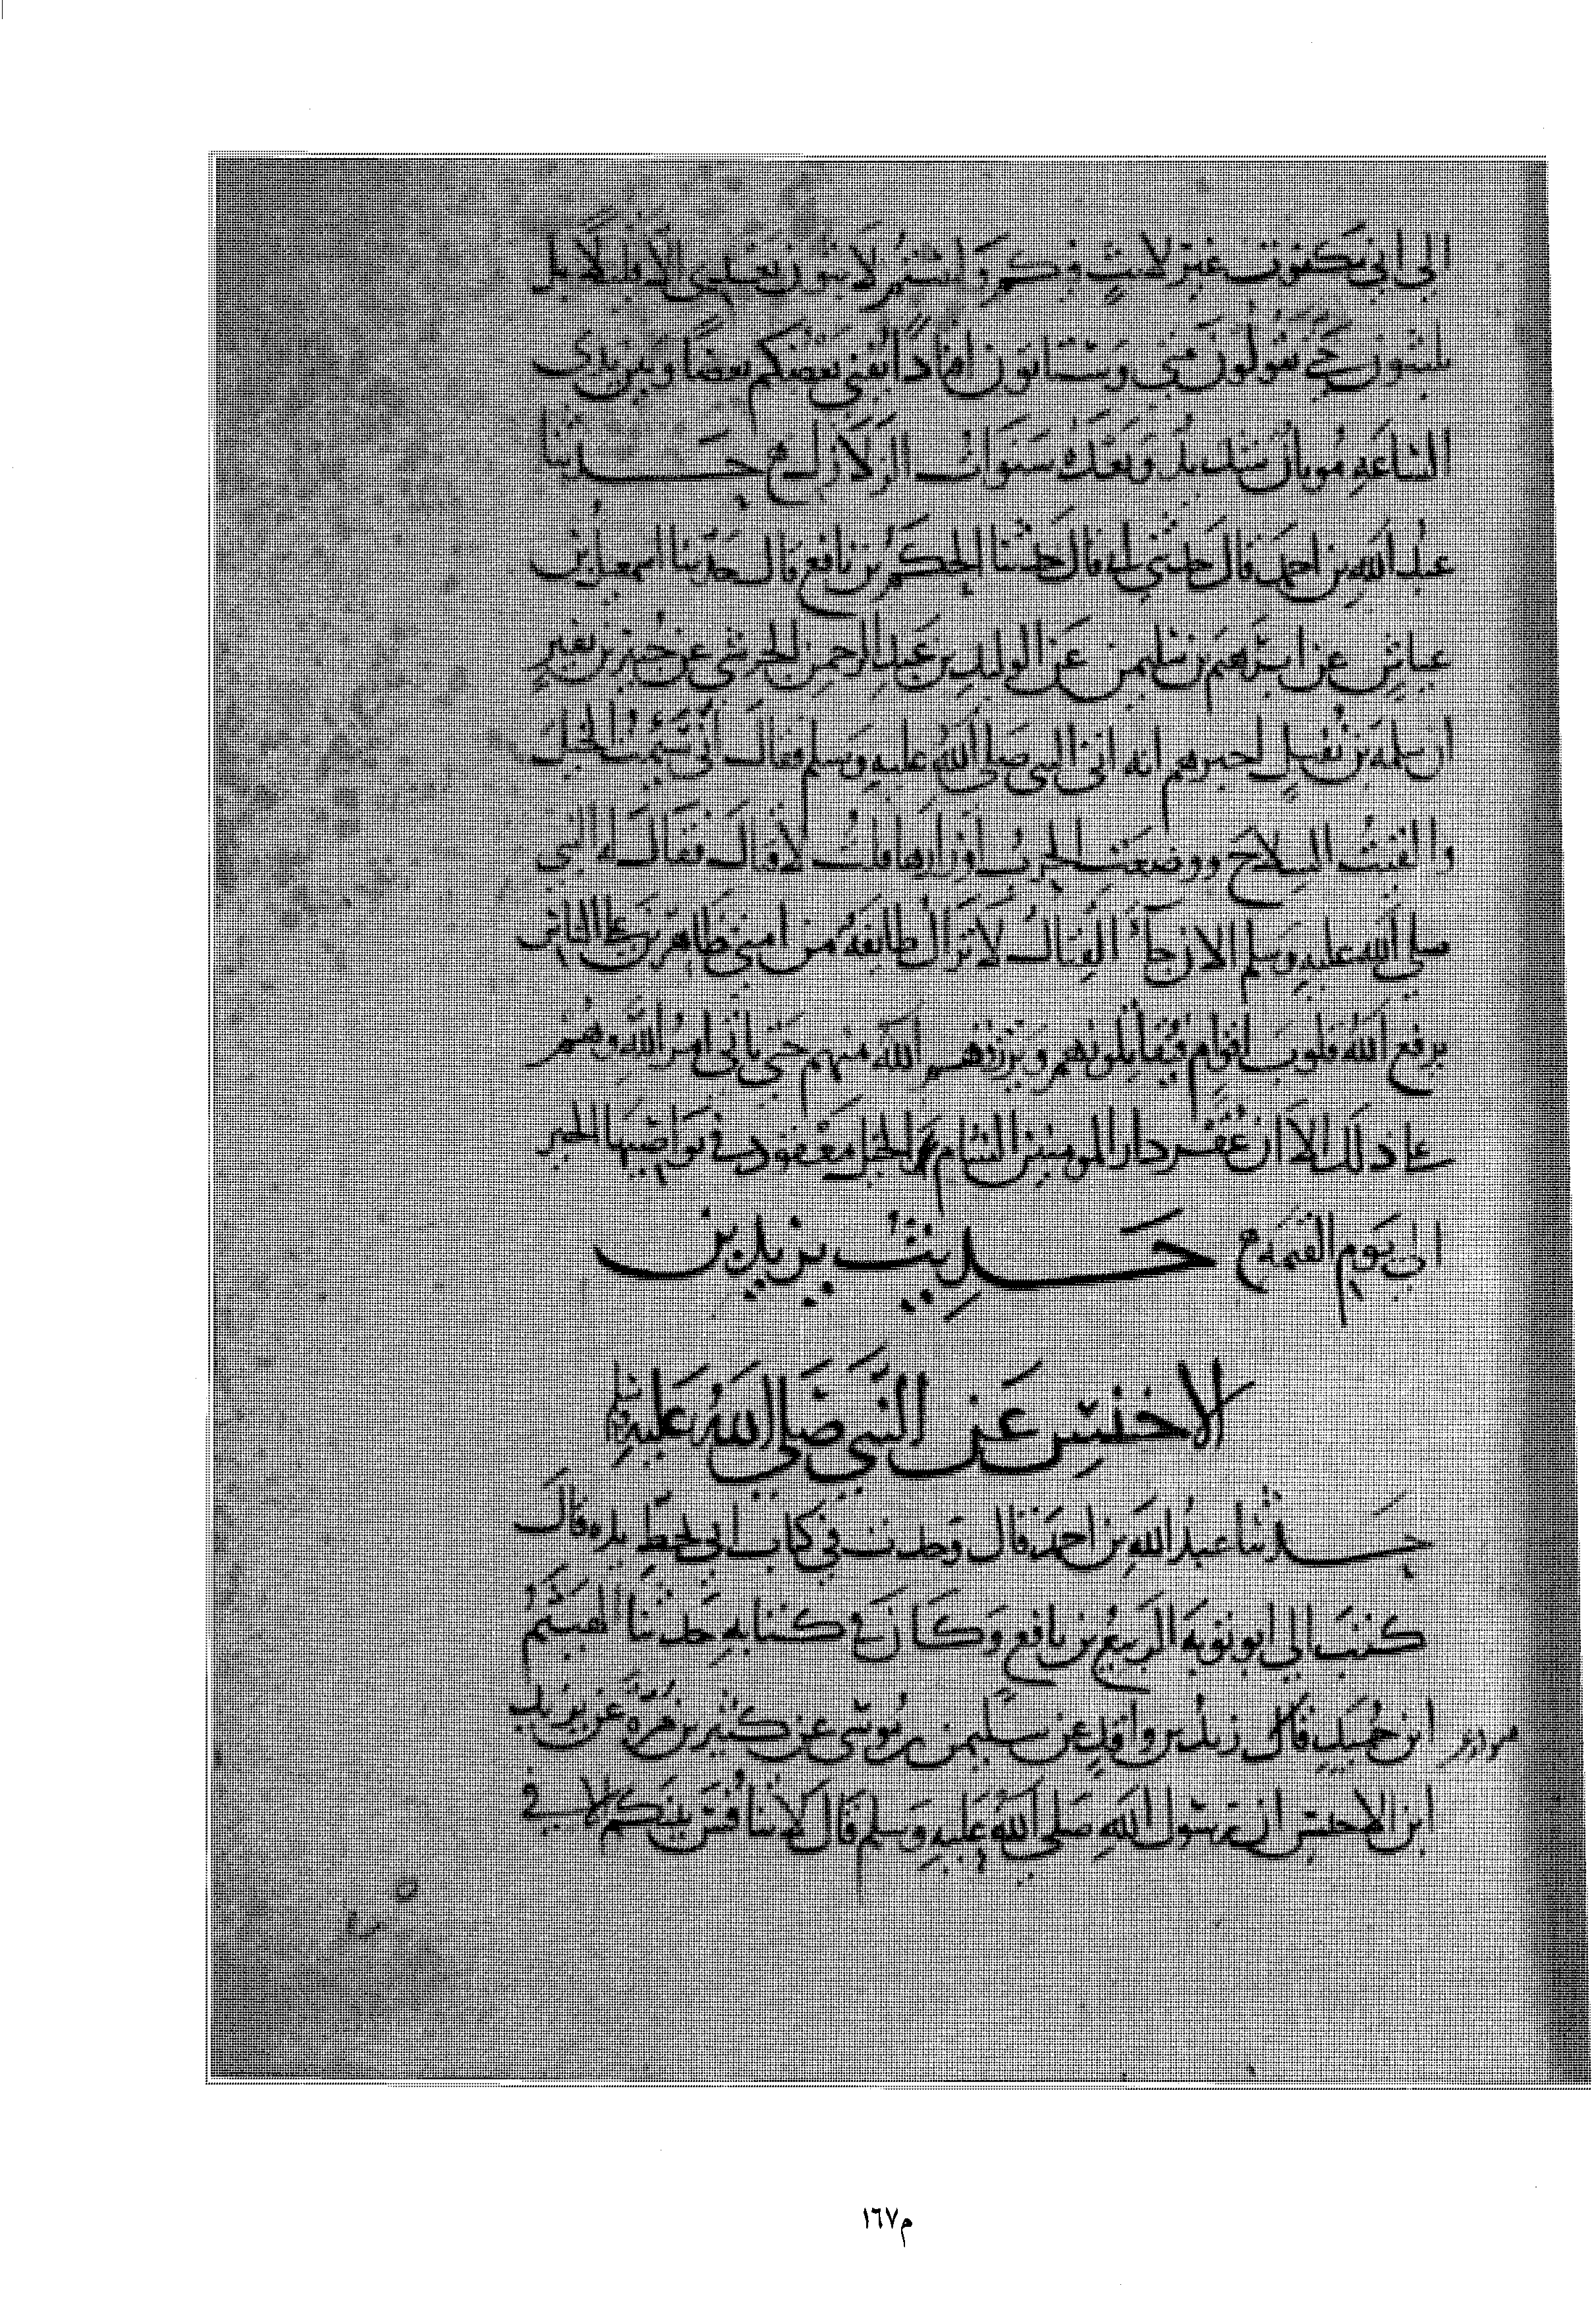 الي اني مكفوت غير لابث فيكم ولستم لابثون بعدي الا قليلا بل
تلبثون حتي تقولون متي وستاتون افنادا يفني بعضكم بعضا وبين يدي
الساعه موتان شديد وبعده سنوات الزلازل ح حدثنا
عبد الله بن احمد قال حدثني ابي قال حدثنا الحكم بن نافع قال حدثنا اسمعيل بن
عياش عن ابرهيم بن سليمن عن الوليد بن عبد الرحمن الجرشي عن جبير بن نفير
ان سلمه بن نفيل اخبرهم انه اتي النبي صلي الله عليه وسلم فقال اني سيمت الخيل
والقيت السلاح ووضعت الحرب اوزارها قلت لا قتال فقال له النبي
صلي الله عليه وسلم الان جاء القتال لا تزال طايفه من امتي ظاهرين علي الناس
يرفع الله قلوب اقوام فيقاتلونهم ويرزقهم الله منهم حتي ياتي امر الله وهم
علي ذلك الا ان عقر دار المومنين الشام والخيل معقود في نواصيها الخير
الي يوم القيمه ح حديث يزيد بن
الاخنس عن النبي صلي الله عليه وسلم
حدثنا عبد الله بن احمد قال وجدت في كتاب ابي بخط يده قال
كتب الي ابو توبه الربيع بن نافع وكان في كتابه حدثنا الهيثم
ابن حميد قال زيد بن واقد عن سليمن بن موسي عن كثير بن مره عن يزيد
ابن الاخنس ان رسول الله صلي الله عليه وسلم قال لا تنافس بينكم الا في
م١٦٧